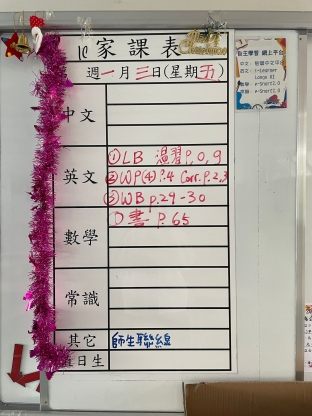 1C 家課表
週一月三日(星期五)
中文
英文
①LB 溫習P.8,9
②WP(4)P.4 Corr.P.2,3
③WB p.29-30
數學
①書 P.65
常識
其它
師生聯絡
值日生
自主學習 網上平台